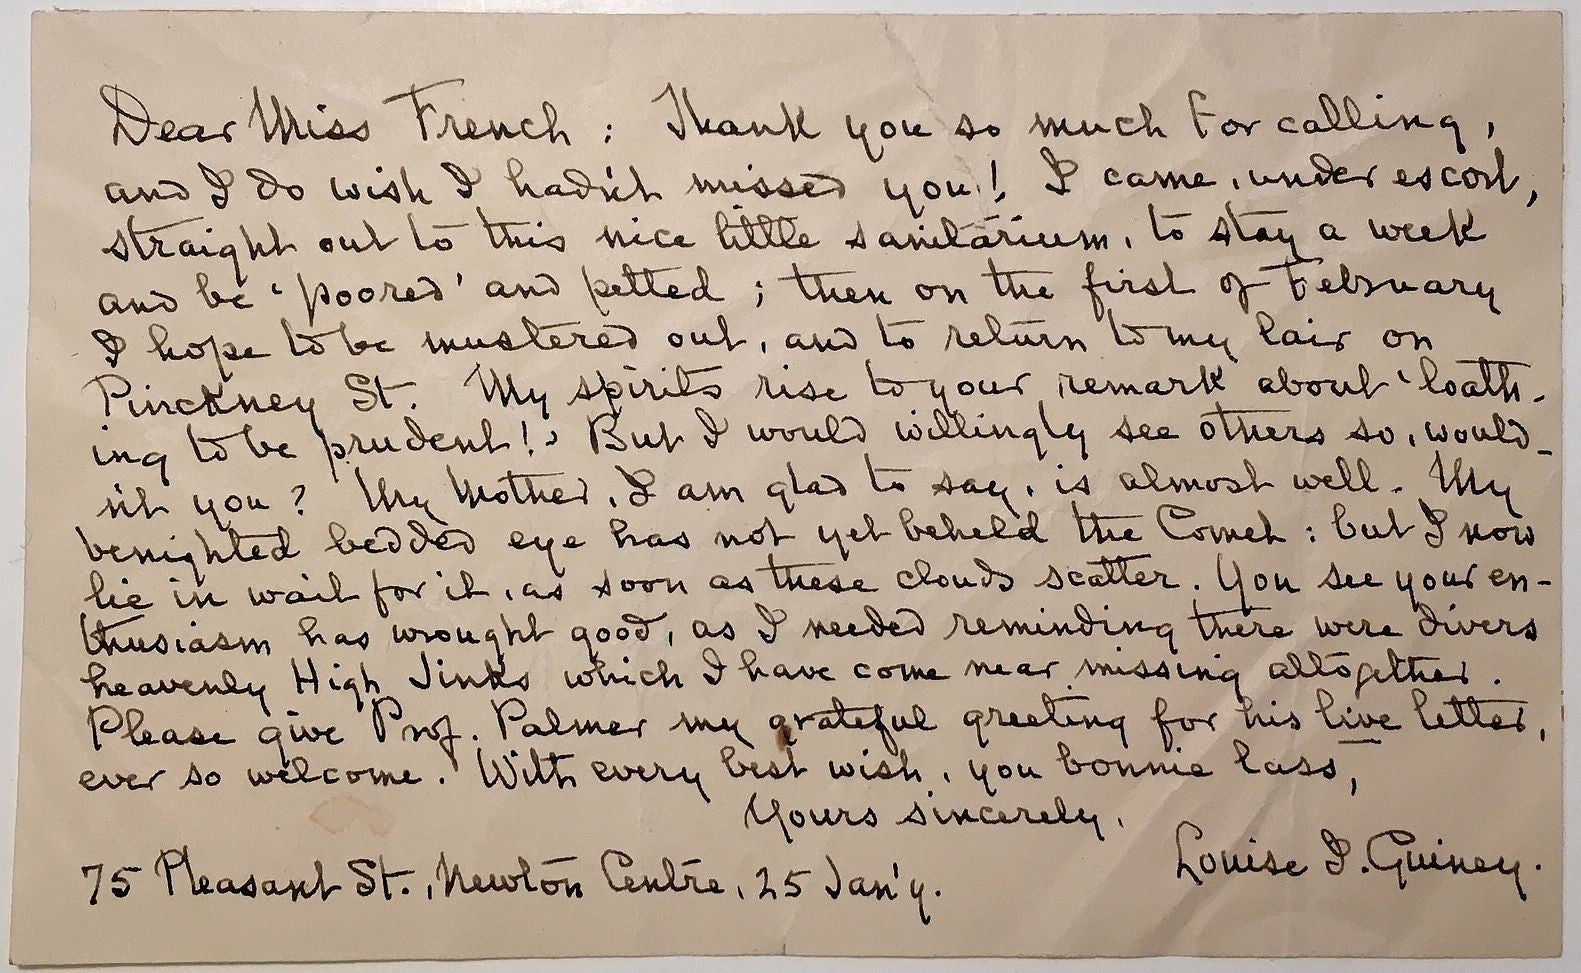 Dear Miss French : Thank you so much for calling,
and I do wish I hadn't missed you! I came, under escort,
straight out to this nice little sanitarium, to stay a week
and be 'poored' and petted ; then on the first of February
I hope to be mustered out, and to return to my lair on
Pinckney St. My spirits rise to your remark about 'loath-
ing to be prudent!' But I would willingly see others so, would-
n't you? My Mother, I am glad to say, is almost well. My
benighted bedded eye has not yet beheld the Comet : but I now
lie in wait for it, as soon as these clouds scatter. You see your en-
thusiasm has wrought good, as I needed reminding there were divers
heavenly High Jinks which I have come near missing altogether.
Please give Prof. Palmer my grateful greeting for his live letter,
ever so welcome. With every best wish, you bonnie lass,
Yours sincerely,
Louise I. Guiney.
75 Pleasant St., Newton Centre, 25 Jan'y.